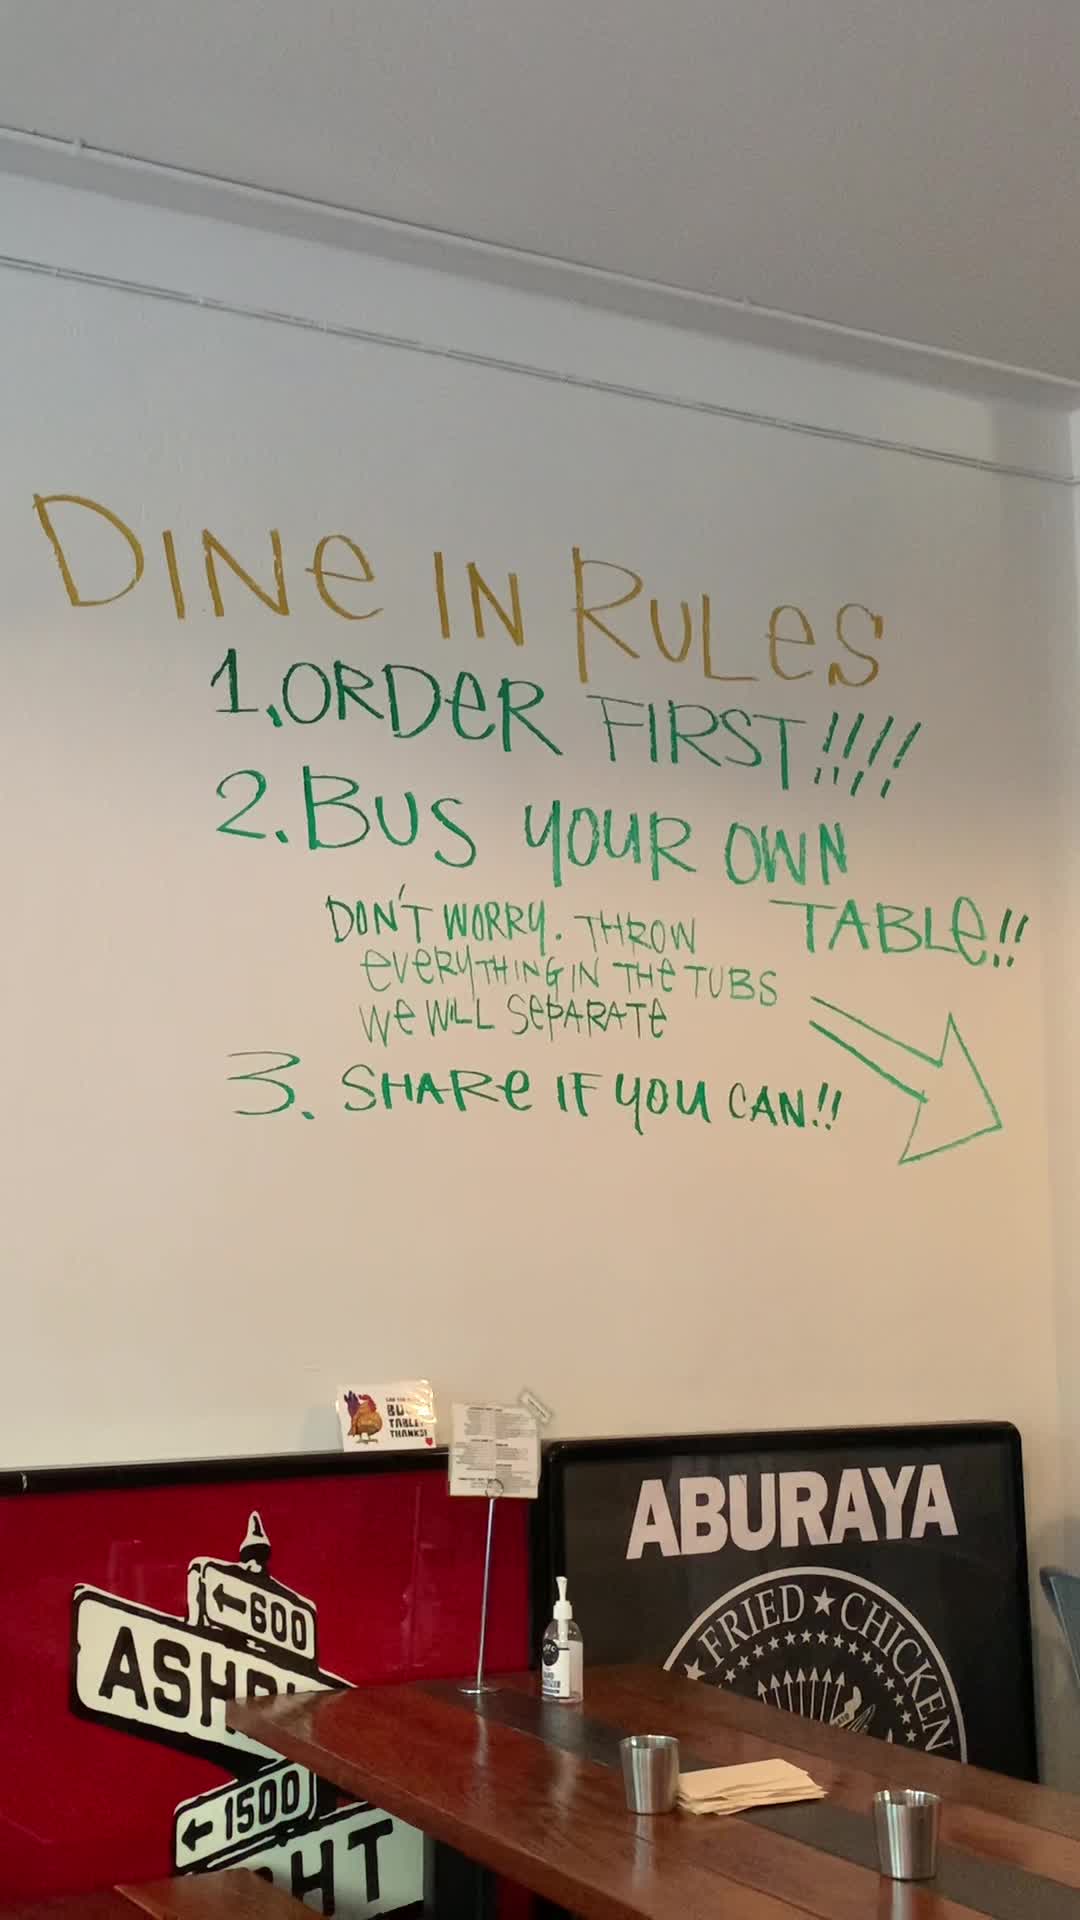 DINe IN RULeS
1.ORDeR FIRST!!!!
2.BUS YOUR OWN
TABLe!!
DON'T WORRY. THROW
eVeRYTHING IN THe TUBS
We WILL SePARATe
3. SHARe IF YOU CAN!!
TABLE?
THANKS!
ABURAYA
FRIED ★ CHICKEN
←600
←1500